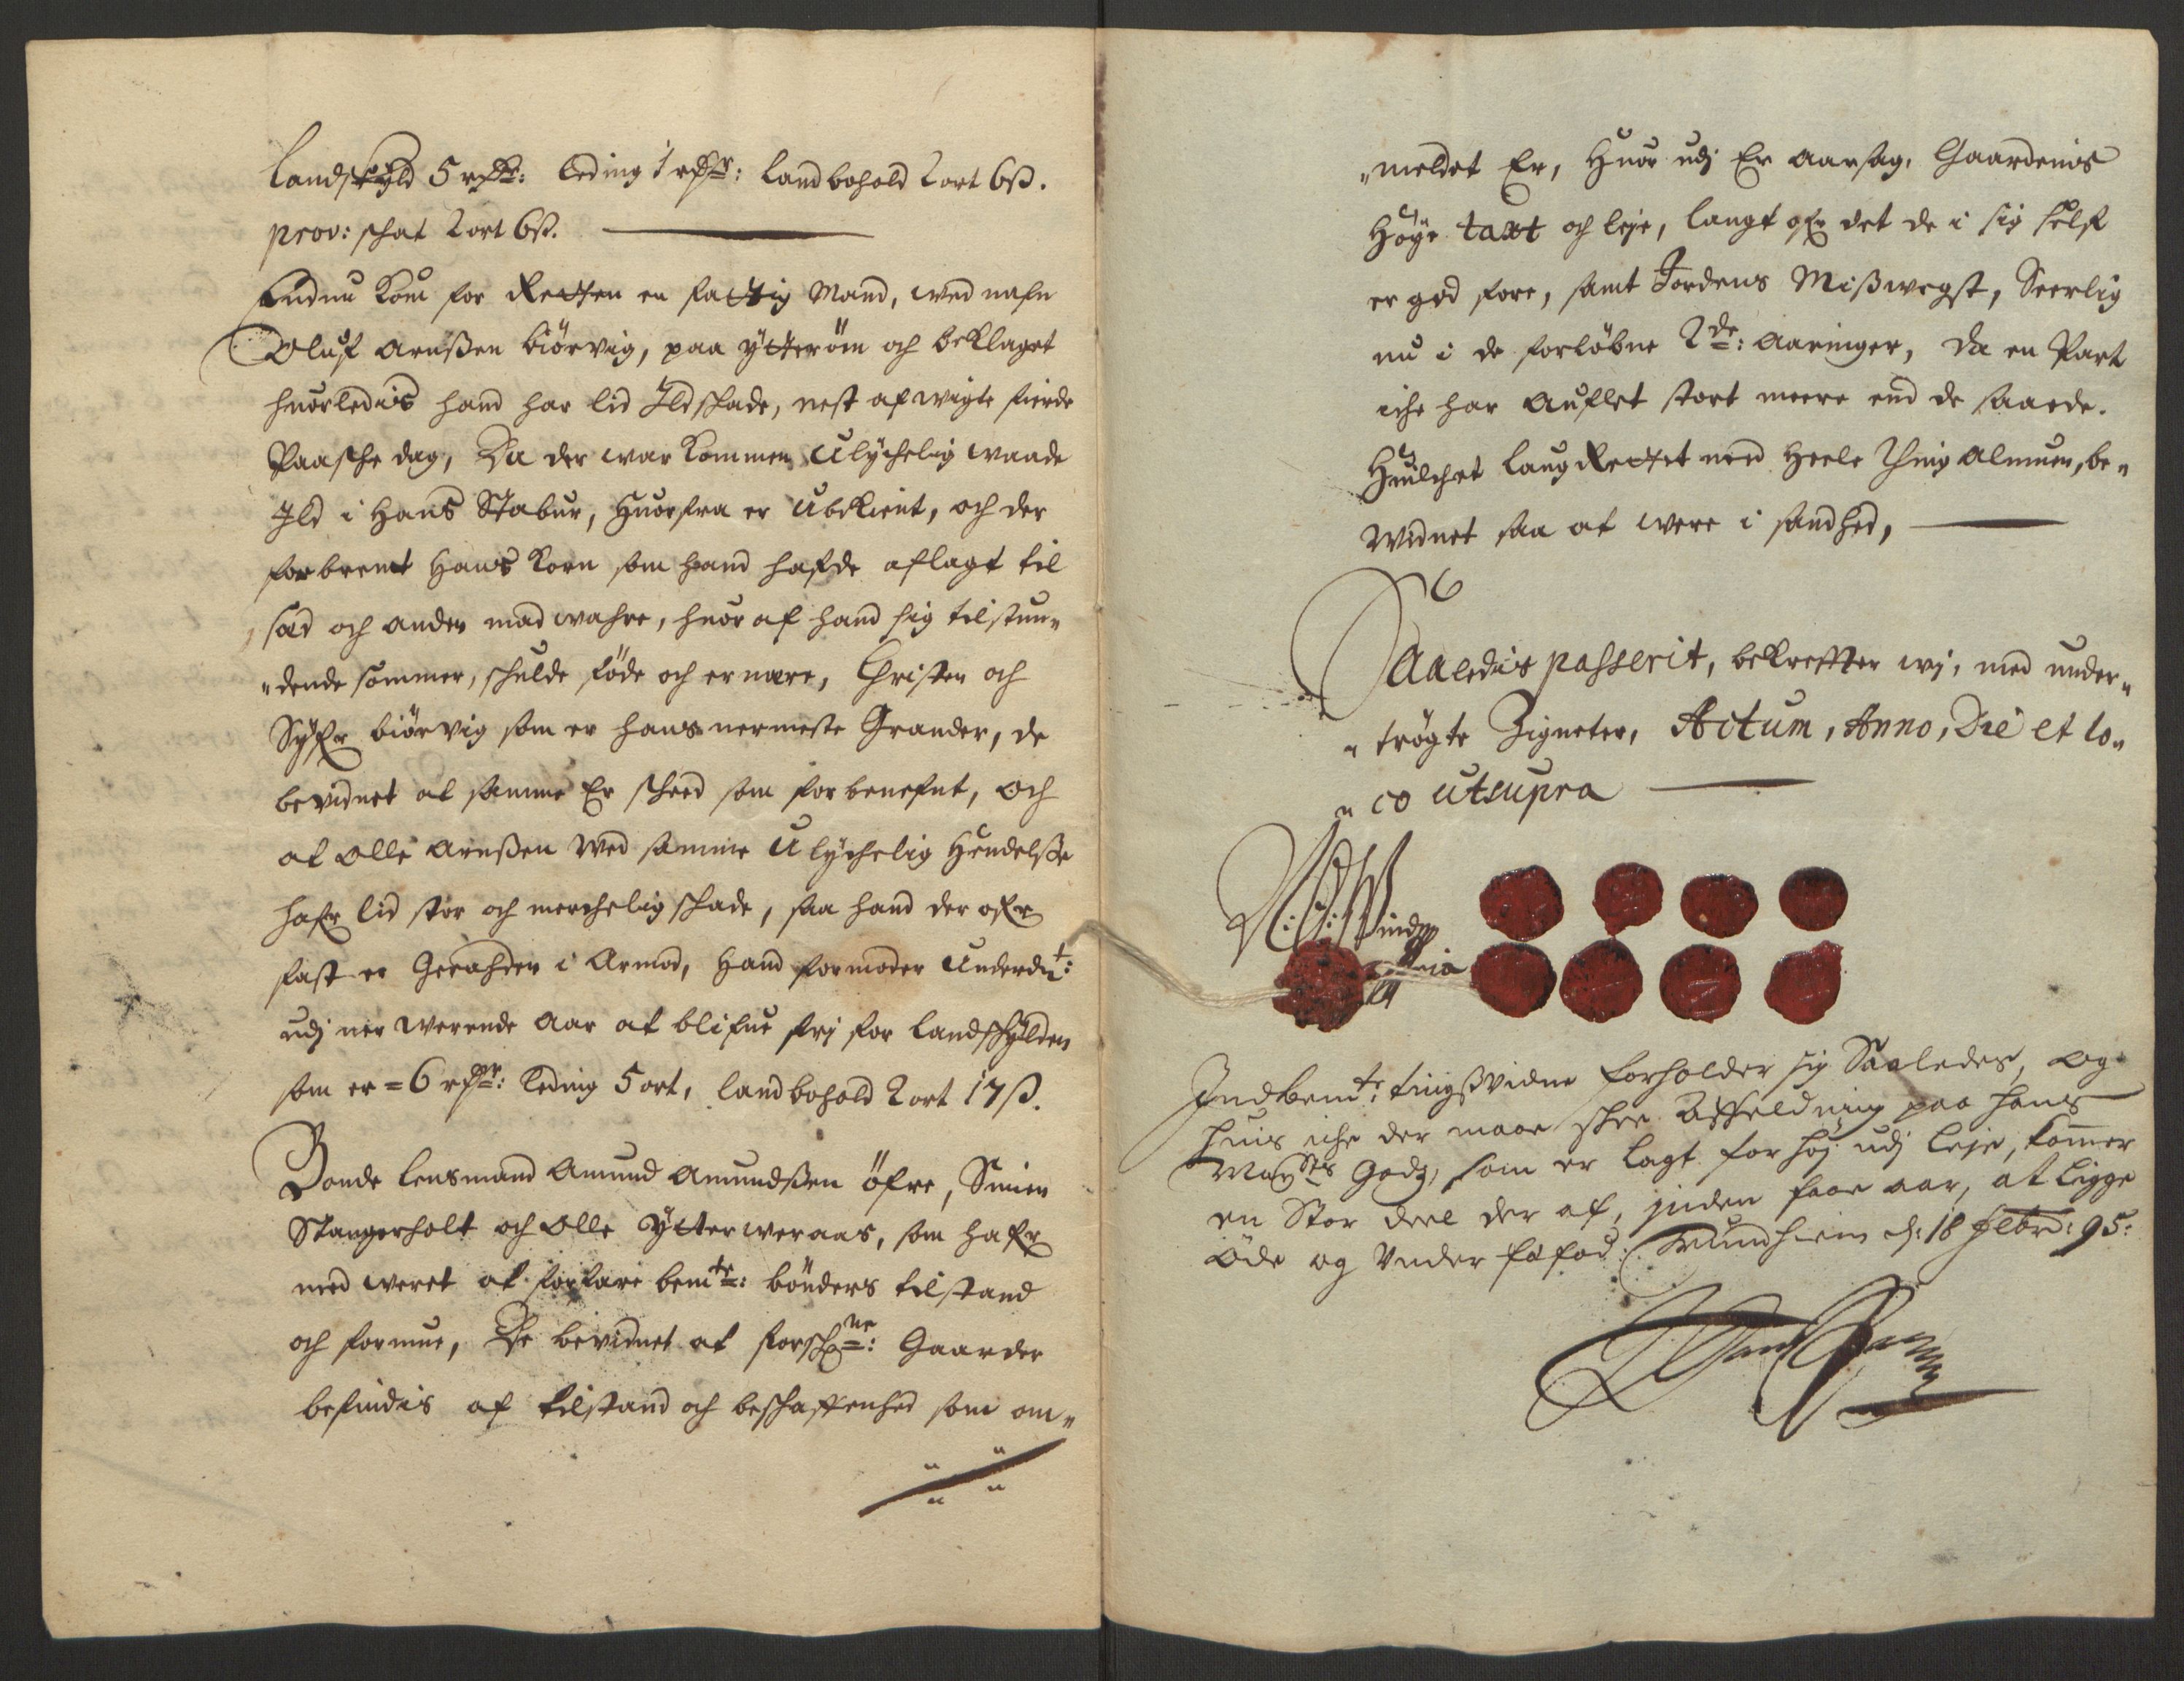 Landskÿld 5 rixdr: Leding 1 rixdr: Landbohold 2 ort 6 ß.
prov: schat 2 ort 6 ß.
Endnu kom for Retten en fattig Mand, wed nafn
Oluf Arnßen biörvig, paa ÿtterøen och beklaget
huorledis hand har lid Ildschade, nest afwigte fierde
Paasche dag, Da der war kommen Ulÿchelig waade
Ild i Hans Stabur, Huorfra er Ubekient, och der
forbrent Hans korn som hand hafde aflagt til
sæd och anden mad wahre, huoraf hand sig tilstun„
„dende sommer, schulde föde och ernære, Christen och
Syfr biörvig som er hans nermeste Grander, de
bevidnet at samme Er scheed som forbenefnt, och
at Olle Arnßen wed samme Ulÿchelig Hendelße
hafr lid stor och merchelig schade, saa hand der ofr
fast er Geraahden i Armod, hand formoder Underdt:
udj nerwerende Aar at blifue frj for landschÿlden
som er = 6 rixdr: Leding 5 ort, landbohold 2 ort 17 ß.
Bonde lensmand Amund Amundßen öfre, Simen
Stangerholt och Olle ÿtterweraas, som hafr
med weret at forfare bemte: bönders tilstand
och formue, De bevidnet at forschne: Gaarder
befindis af tilstand och beschaffenhed som om„
„meldet Er, Huor udj Er aarsag, Gaardenis
Höÿe taxt och leje, langt ofr det de i sig self
er god fore, samt Jordens Mißwegst, Seerlig
nu i de forløbne 2de: Aaringer, da en Part
iche har Auflet stort meere end de saaede.
Huilchet laugRettet med Heele Thing Almuen, be„
widnet saa at were i sandhed,
Saaledis passerit, bekreffter wj, med under„
„trögte Zigneter, Actum, Anno, Die et lo„
„co utsupra
Indbemte: tingßvidne forholder sig Saaledes, og
huis iche der maae skee Affeldning paa hans
Maysts Godz, som er lagt for høj udj leje, kommer
en Stor deel der af, inden faae aar, at ligge
öde og Under fæfod. Trundhiem d: 18 Febr: 95: